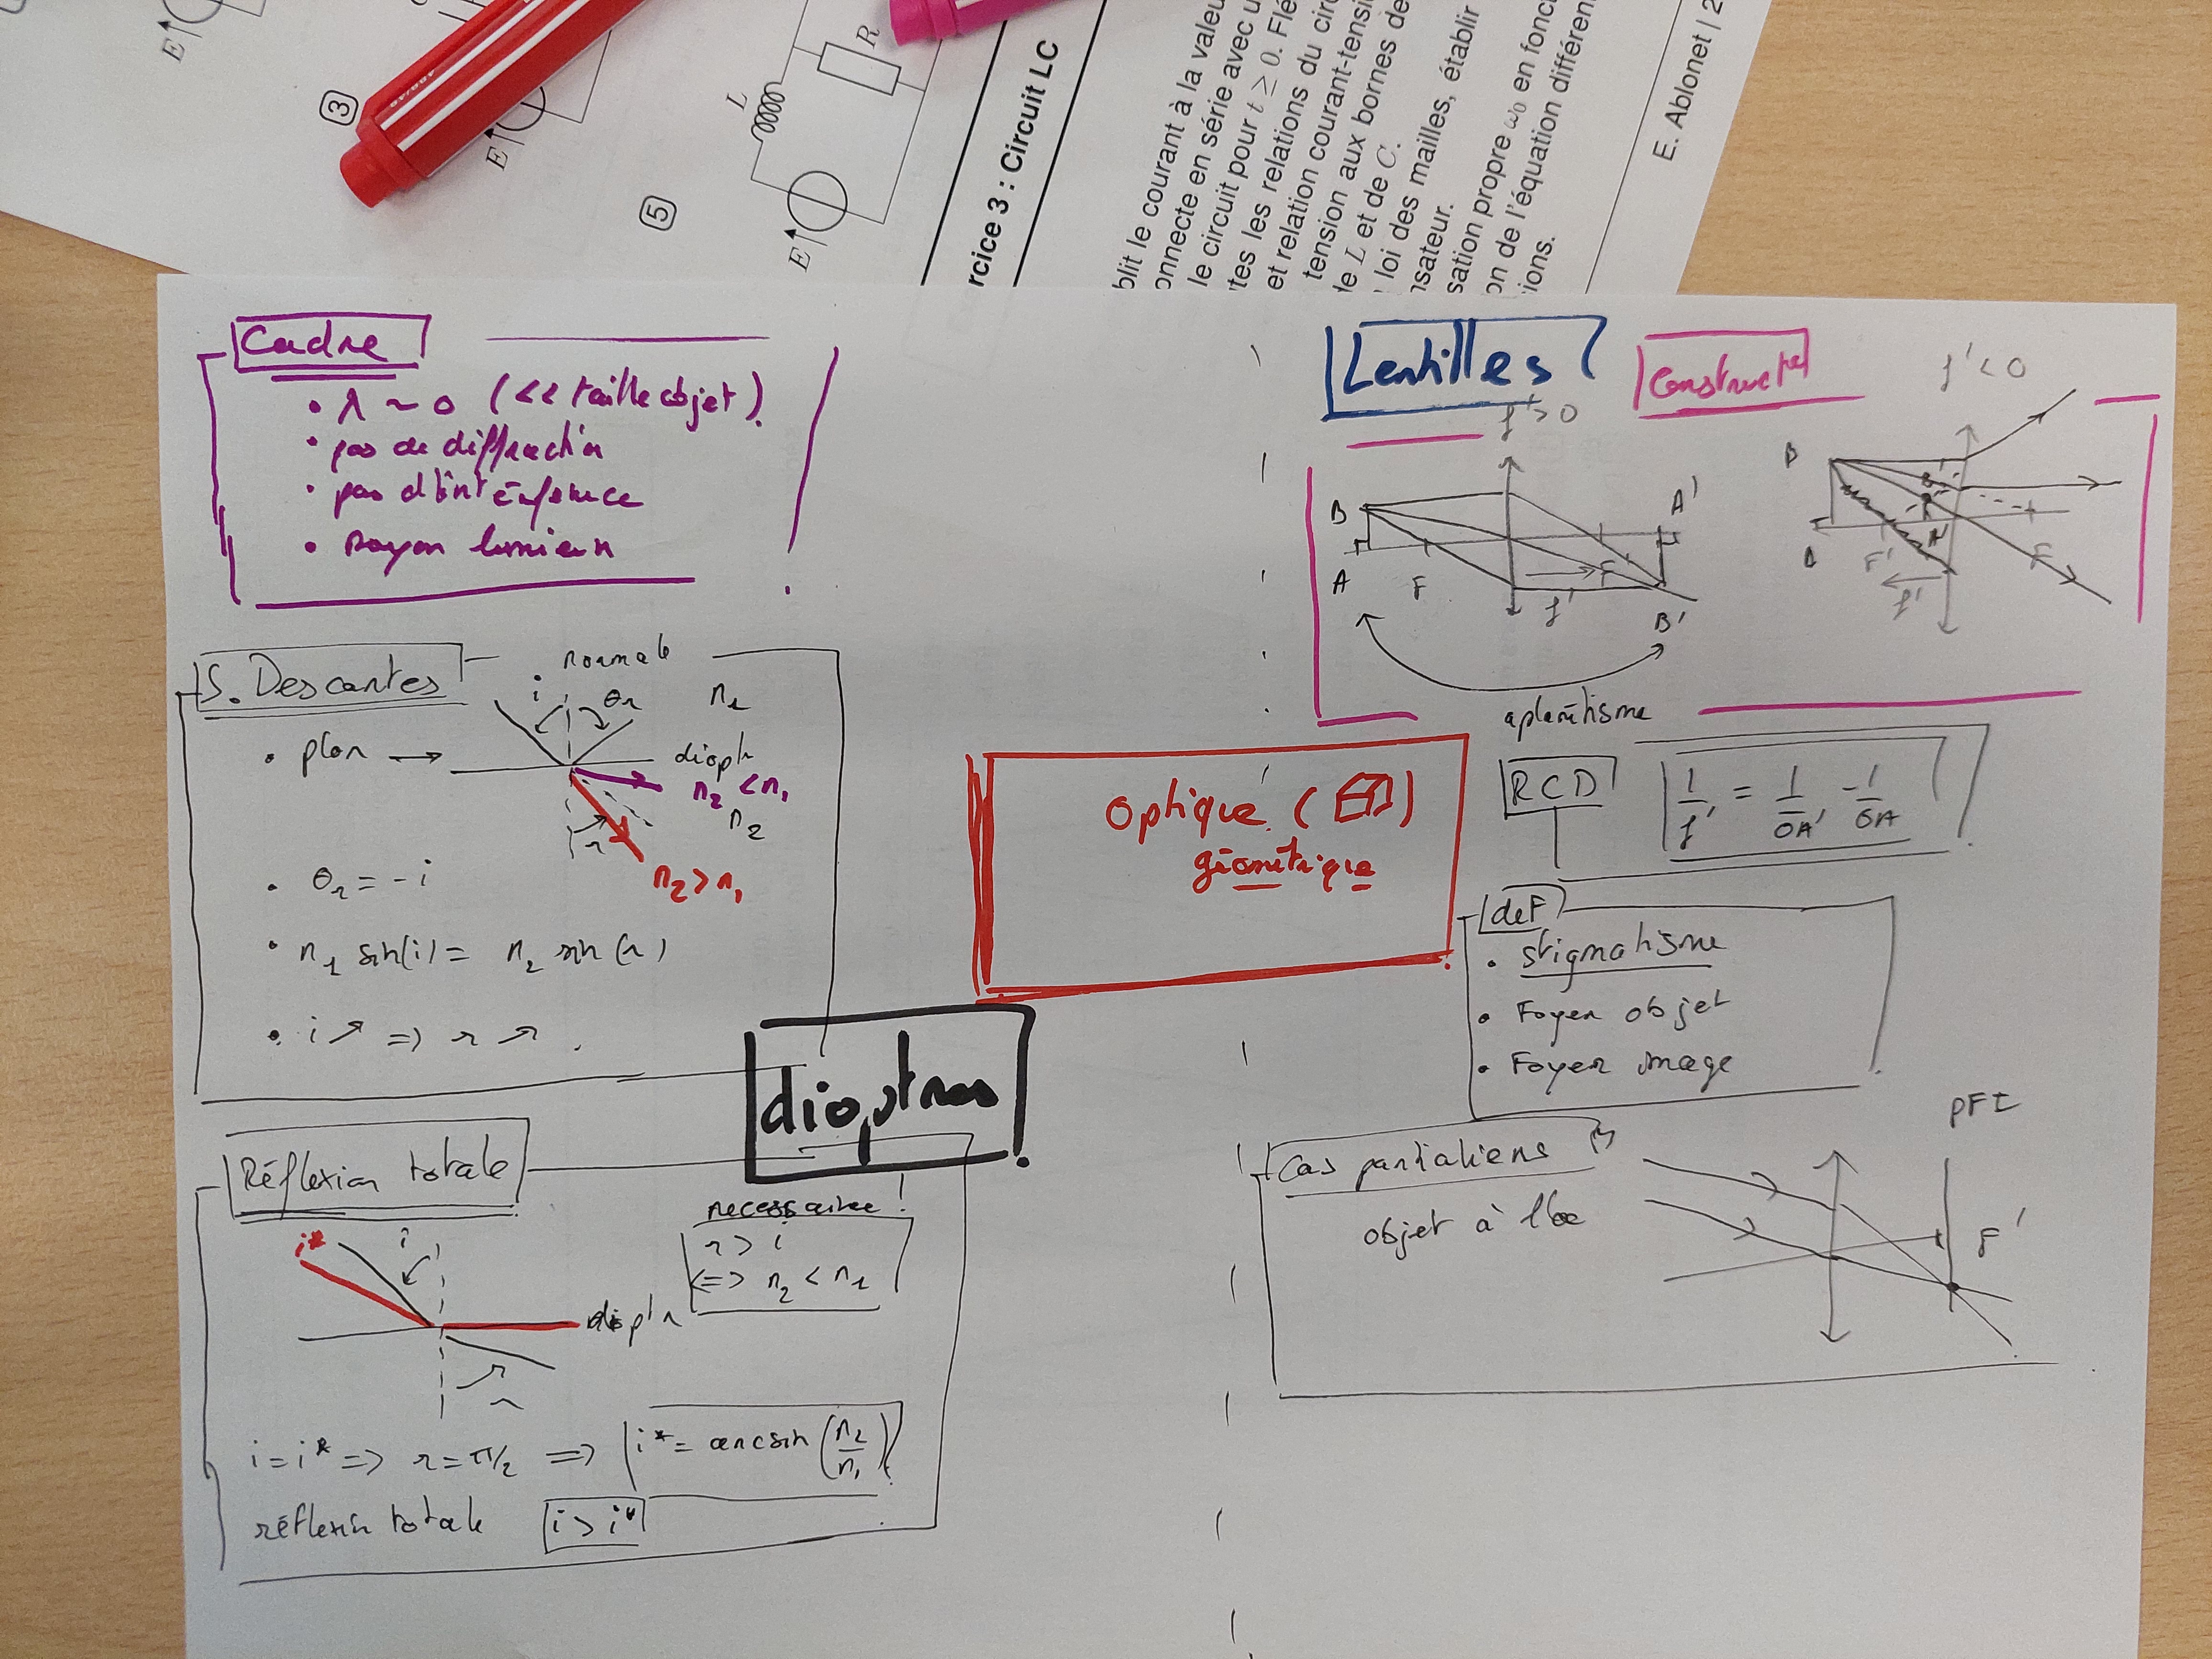 E
3
E
5
E
L
R
rcice 3 : Circuit LC
blit le courant à la valeu
onnecte en série avec u
le circuit pour t ≥ 0. Flé
tes les relations du circ
et relation courant-tensi
tension aux bornes de
de L et de C.
loi des mailles, établir
nsateur.
sation propre ω₀ en fonci
on de l'équation différen
ions.
E. Ablonet | 2
Cadre
• λ ~ 0 (<< taille objet).
• pas de diffraction
• pas d'interférence
• Rayon lumieux
S. Descartes
normale
i
θr
n1
• plan →
dioptr
n2 < n1
n2
r
n2 > n1
• θr = -i
• n1 sin(i) = n2 sin(r)
• i ↗ => r ↗
dioptres
Réflexion totale
necessaire
r > i
<=> n2 < n1
i*
i
dioptr
r
i = i* => r = π/2 => i* = arcsin(n2/n1)
réflexion totale i > i*
Optique
géométrique
Lentilles
f' > 0
f' < 0
B
A'
A
F
F'
f'
B'
B
A
F'
A'
F
f'
aplanétisme
RCD
1/f' = 1/OA' - 1/OA
deF
• stigmatisme
• Foyer objet
• Foyer image
Cas particuliers
objet à l'∞
PFI
F'